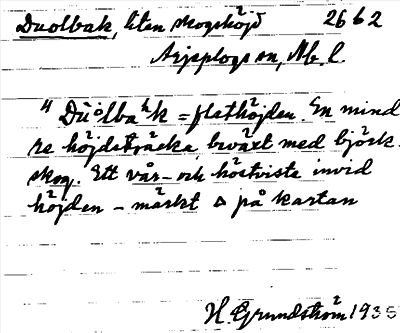 Duolbak, liten skogshöjd 26 b 2
Arjeplogs sn, Lb l.
" Dūolba h k = flathöjden. En mind
re höjdsträcka, beväxt med björk-
skog. Ett vår- och höstviste invid
höjden - märkt Δ på kartan
H. Grundström 1935